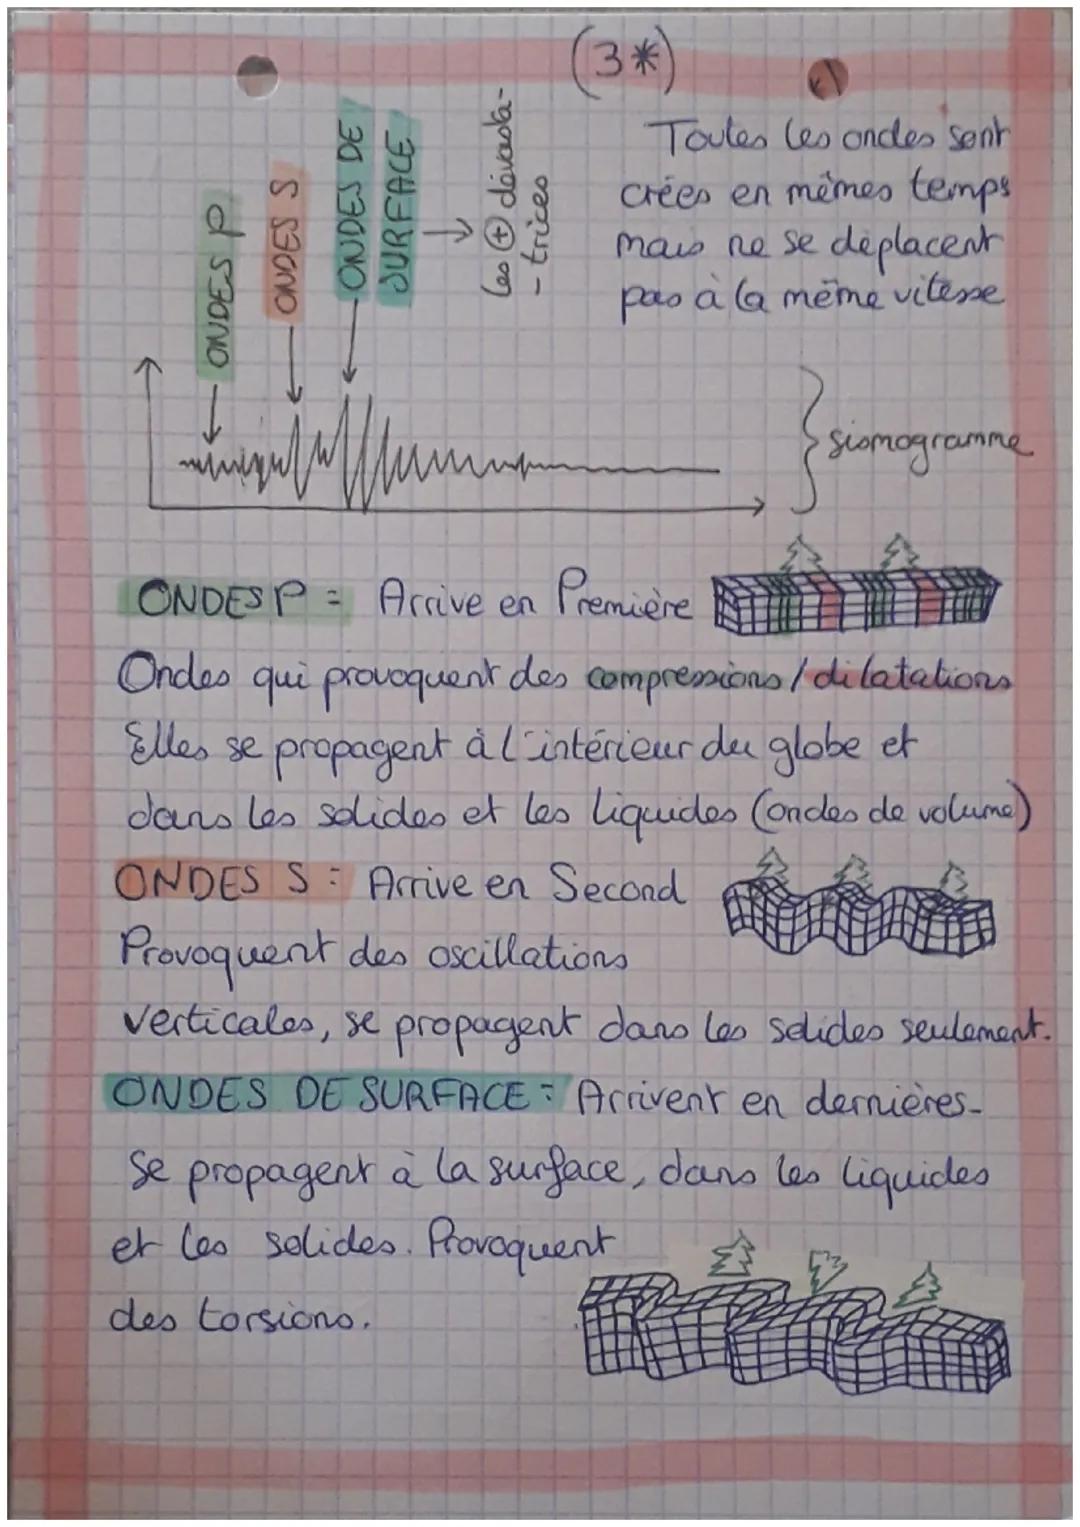 (3*)
ONDES P
ONDES S
ONDES DE
SURFACE
Les ⊕ dévasta-
- trices
Toutes les ondes sont
crées en mêmes temps
mais ne se déplacent
pas à la même vitesse
sismogramme
ONDES P = Arrive en Première
Ondes qui provoquent des compressions / dilatations
Elles se propagent à l'intérieur du globe et
dans les solides et les liquides (ondes de volume)
ONDES S : Arrive en Second
Provoquent des oscillations
verticales, se propagent dans les solides seulement.
ONDES DE SURFACE : Arrivent en dernières.
Se propagent à la surface, dans les liquides
et les solides. Provoquent
des torsions.